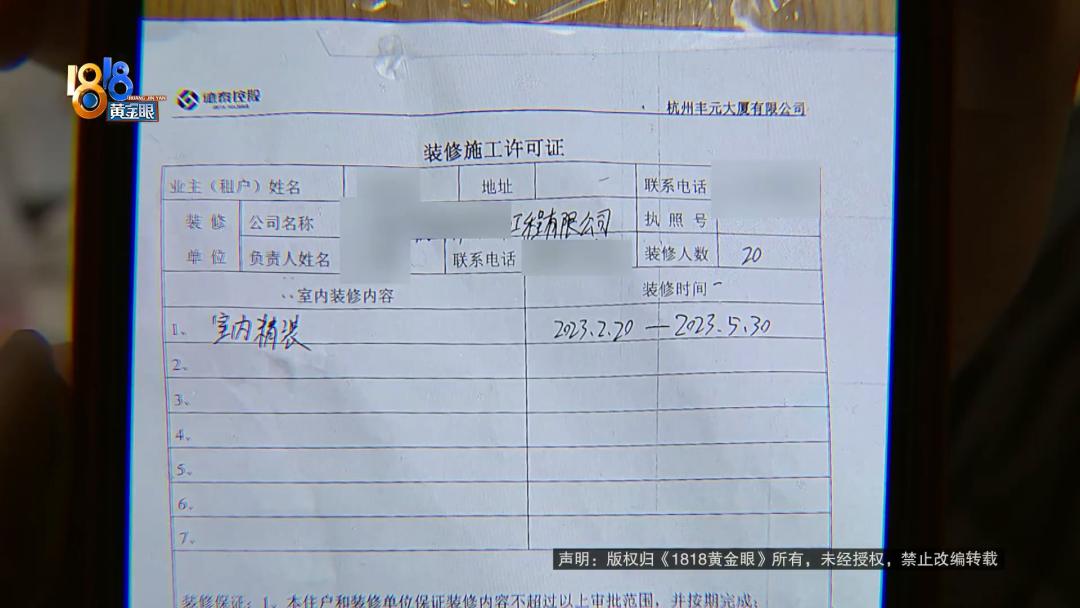 1818
HUANG JIN YAN
黄金眼
德泰控股
杭州丰元大厦有限公司
装修施工许可证
业主（租户）姓名 地址 联系电话
装修 公司名称 工程有限公司 执照号
单位 负责人姓名 联系电话 装修人数 20
室内装修内容 装修时间
1、室内精装 2023.2.20 — 2023.5.30
2、
3、
4、
5、
6、
7、
声明：版权归《1818黄金眼》所有，未经授权，禁止改编转载
装修保证：1、本住户和装修单位保证装修内容不超过以上审批范围，并按期完成；